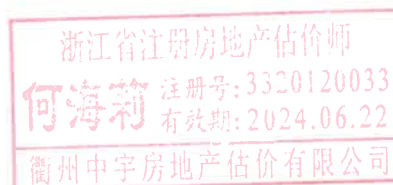 浙江省注册房地产估价师
何海莉
注册号:3320120033
有效期:2024.06.22
衢州中宇房地产估价有限公司